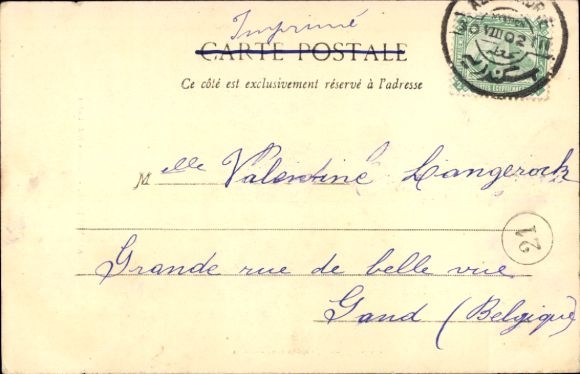 Imprimé
CARTE POSTALE
Ce côté est exclusivement réservé à l'adresse
VIII 02
Melle Valentine Langerock
21
Grande rue de belle vue
Gand (Belgique)